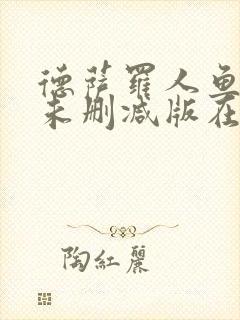 德萨罗人鱼
未删减版在
陶紅麗